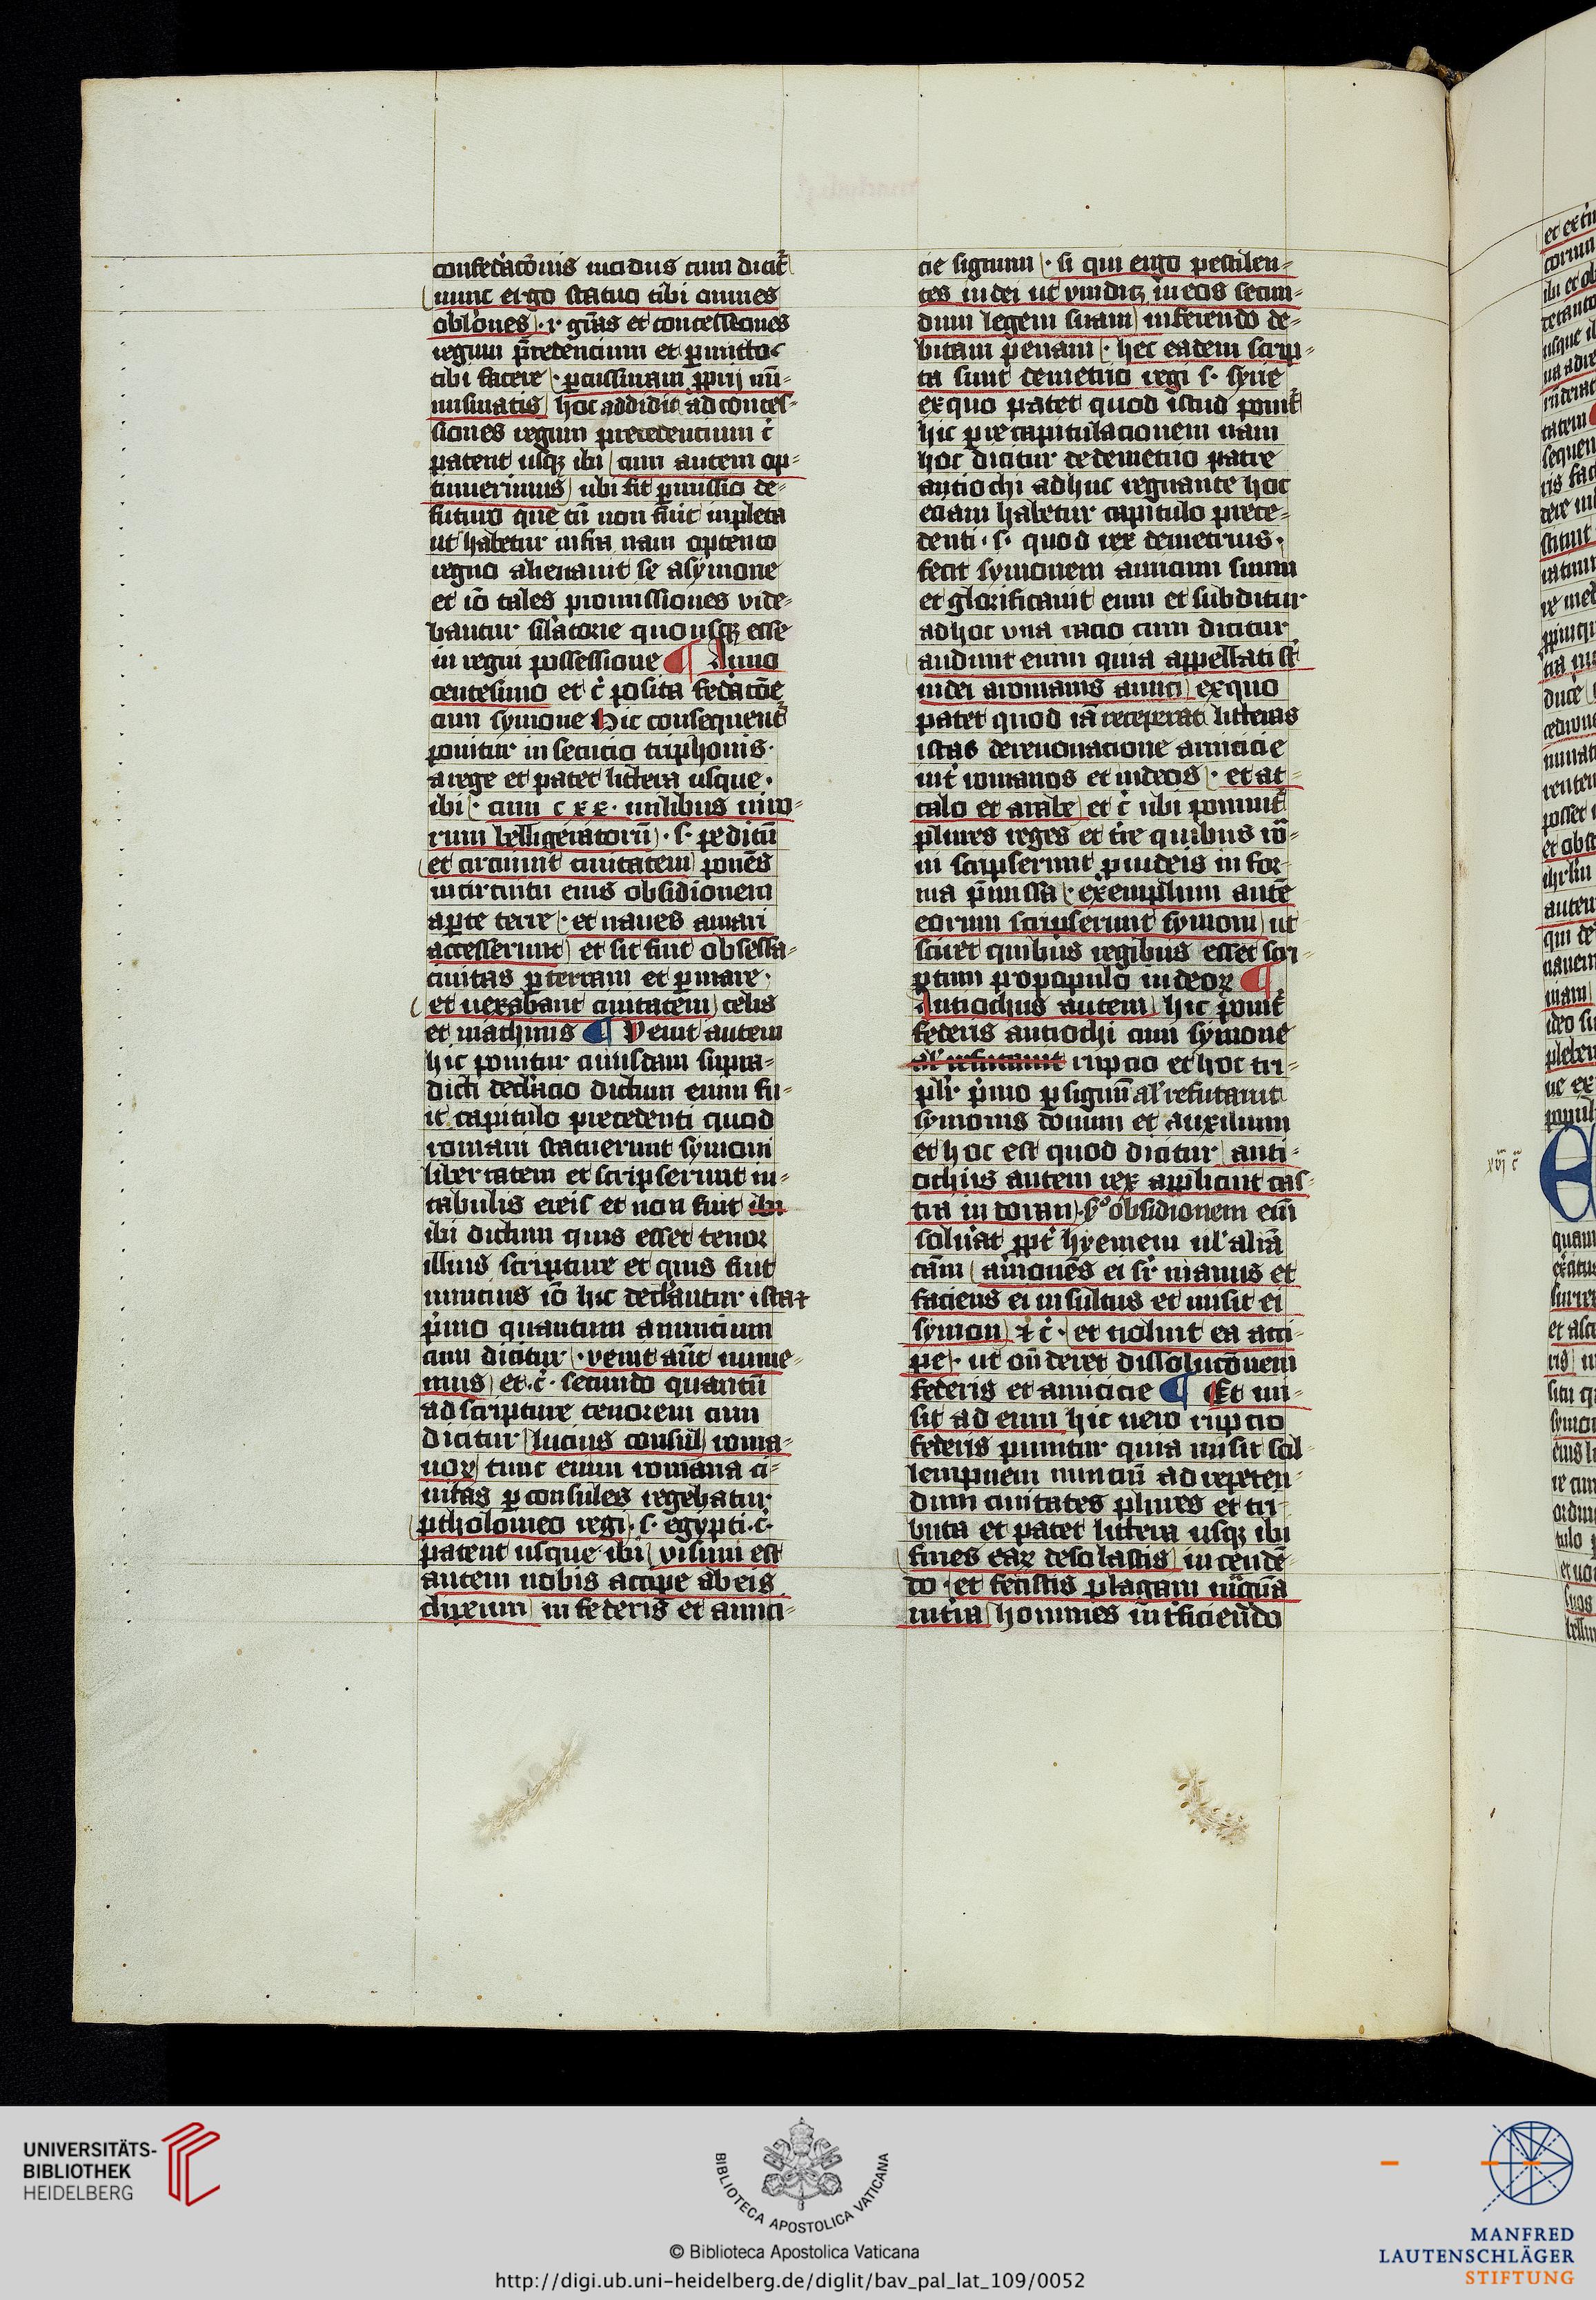 confed'acōnis incidus cum dicit̄
nunc ergo statuo tibi omnes
oblōnes · r gr̄as et concessiones
regum p̄redencium et p̄mitto
tibi facere · p̄cussuram pp̄rij nu-
mismatis hoc addidit ad conces-
siones regum precedencium c̄
patent usqꝫ ibi cum autem op-
tinuerimus ubi fit p̄missio de-
futuro que tn̄ non fuit inpleta
ut habetur infra nam optento
regno alienauit se asymone
et iō tales promissiones vide-
bantur silatorie quousqꝫ esse
in regni possessione ¶ Anno
centesimo et c̄ posita fed'acōe
cum symone Hic consequent̄
ponitur in secucio triphonis ·
arege et patet littera usque ·
ibi · cum c x x · milibus uiro-
rum belligeratorū · s · peditū
et circuiuit ciuitatem ponēs
incircuitu eius obsidionem
ap̄te terre · et naues amari
accesserunt et sic fuit obsessa-
ciuitas p̄terram et p̄mare ·
et uexabant ciuitatem telis
et machinis ¶ Venit autem
hic ponitur cuiusdam supra-
dicti decl'acio dictum enim fu-
it capitulo precedenti quod
romani statuerunt symoni
libertatem et scripserunt in-
tabulis ereis et non fuit ibi
ibi dictum quis esset tenor
illius scripture et quis fuit
nuncius iō hic decl'antur ista 2
p̄mo quantum anuncium
cum dicitur · venit aūt nume-
nius et · c̄ · secundo quantū
ad scripture tenorem cum
dicitur lucius consul roma-
noꝝ tunc enim romana ci-
uitas p̄ consules regebatur
ptholomeo regi · s · egypti · c̄ ·
patent usque ibi visum est
autem nobis accipe ab eis
clipeum in federis et amici-
cie signum · si qui ergo pestilen-
tes iudei ut vindicꝫ in eos secun-
dum legem suam inferendo de-
bitam penam · hec eadem scrip-
ta sunt demetrio regi s · syrie
exquo patet quod istud ponit̄
hic pre capitulacionem nam
hoc dicitur dedemetrio patre
antiochi adhuc regnante hoc
eciam habetur capitulo prece-
denti · s · quod rex demetrius ·
fecit symonem amicum suum
et glorificauit eum et subditur
adhoc vna racio cum dicitur
audiunt enim quia appellati st̄
iudei aromanis amici exquo
patet quod iā receperat litteras
istas derenouacione amicicie
int̄ romanos et iudeos · et at-
talo et arabe et c̄ ubi ponunt̄
plures reges et t̄re quibus ro-
m scripserunt p̄ iudeis in for-
ma p̄missa · exemplum autē
eorum scripserunt symoni ut
sciret quibus regibus esset scri-
ptum pro populo iudeoꝝ ¶
Antiochus autem hic ponit̄
federis antiochi cum symone
al' refutauit rupcio et hoc tri-
plr̄ p̄mo p̄ signū al' refutauit
symonis donum et auxilium
et hoc est quod dicitur anti-
ochus autem rex applicuit cas-
tra in doran · sº obsidionem eni
soluat pp̄t hyemem ul' aliā
cām amouēs ei sr̄ manus et
faciens ei insultus et misit ei
symon et c̄ · et noluit ea acci-
pe · ut on̄deret dissolucōnem
federis et amicicie ¶ Et mi-
sit ad eum hic uero rupcio
federis punitur quia misit sol-
lempnem nunciū ad repeten-
dum ciuitates plures et tri-
buta et patet littera usqꝫ ibi
fines eaꝝ desolastis incendē-
do · et fecistis plagam magnā
int̄ra homines int̄ficiendo
xvj c̄
UNIVERSITÄTS-
BIBLIOTHEK
HEIDELBERG
BIBLIOTECA APOSTOLICA VATICANA
© Biblioteca Apostolica Vaticana
http://digi.ub.uni-heidelberg.de/diglit/bav_pal_lat_109/0052
MANFRED
LAUTENSCHLÄGER
STIFTUNG